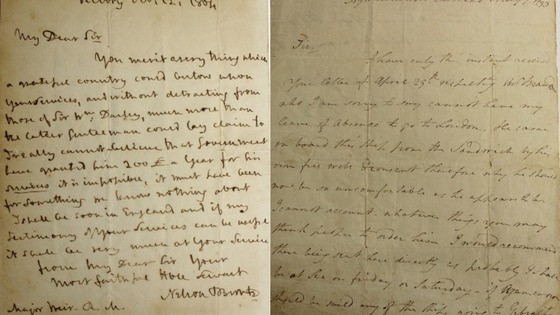 Victory Oct. 12, 1804
My Dear Sir
You merit every thing which
a grateful country could bestow upon
your services, and without detracting from
those of Sir Wm. much more than
the latter Gentleman could lay claim to
I really cannot believe that Government
have granted him 200£ a year for his
services it is impossible, it must have been
for something we know nothing about
I shall be soon in England and if my
testimony of your services can be useful
it shall be very much at your service
from My Dear Sir Your
most faithful Hble Servant
Nelson Bronte
Major Weir. R. M.
Sir,
I have only this instant received
your letter of April 25th respecting
who I am sorry to say cannot have my
leave of Absence to go to London. He came
on board this Ship from the Sandwich by his
own free will & consent therefore why he should
now be so uncomfortable as he appears to be
I cannot account. whatever things you may
think proper to order him I would recommend
there being sent here directly as probably I shall
be at Sea on friday or Saturday - if
should be sent any of the ships going to